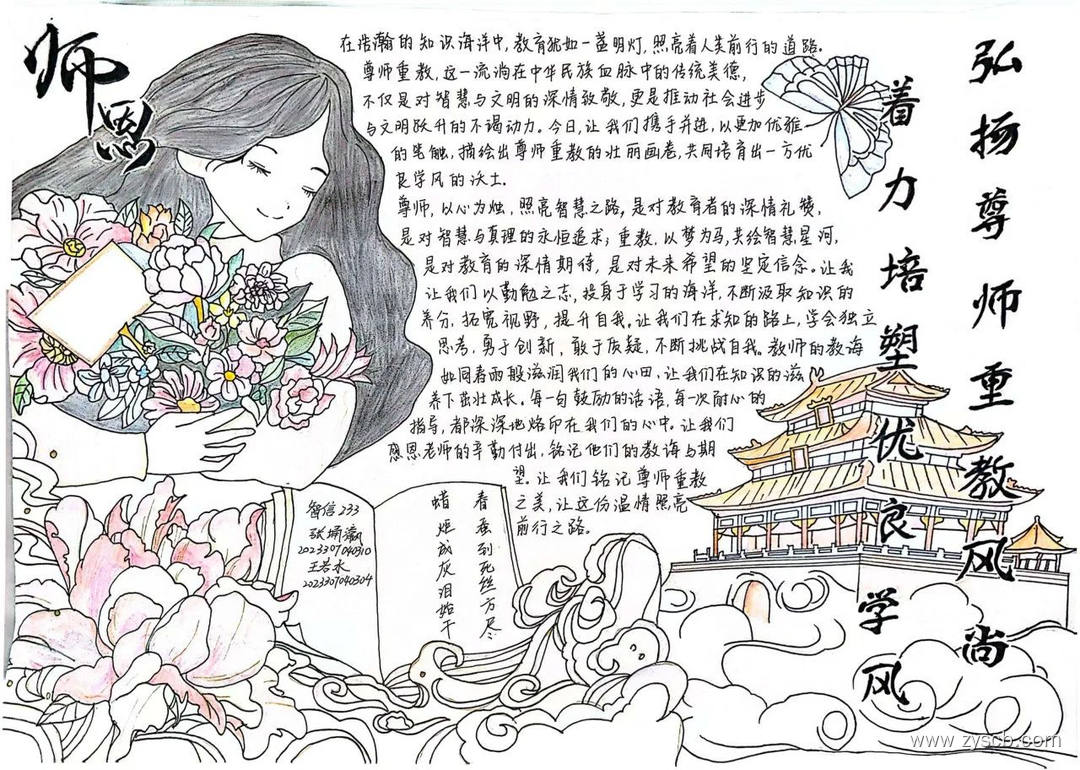 师恩
在浩瀚的知识海洋中,教育犹如一盏明灯,照亮着人类前行的道路.
尊师重教,这一流淌在中华民族血脉中的传统美德,
不仅是对智慧与文明的深情致敬,更是推动社会进步
与文明跃升的不竭动力。今日,让我们携手并进,以更加优雅
的笔触,描绘出尊师重教的壮丽画卷,共同培育出一方优
良学风的沃土.
尊师,以心为烛,照亮智慧之路,是对教育者的深情礼赞,
是对智慧与真理的永恒追求;重教,以梦为马,共绘智慧星河,
是对教育的深情期待,是对未来希望的坚定信念。让我
让我们以勤勉之志,投身于学习的海洋,不断汲取知识的
养分,拓宽视野,提升自我。让我们在求知的路上,学会独立
思考,勇于创新,敢于质疑,不断挑战自我。教师的教诲
如同春雨般滋润我们的心田,让我们在知识的滋
养下茁壮成长。每一句鼓励的话语,每一次耐心的
指导,都深深地烙印在我们的心中。让我们
感恩老师的辛勤付出,铭记他们的教诲与期
望。让我们铭记尊师重教
之美,让这份温情照亮
前行之路。
弘扬尊师重教风尚
着力培塑优良学风
春蚕到死丝方尽
蜡炬成灰泪始干
智信233
2023307040310
王若水
2023307040304
www.zyscb.com